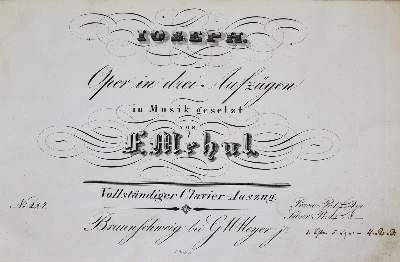 IOSEPH.
Oper in drei Aufzügen
in Musik gesetzt
von
E. Mehul.
Vollständiger Clavier Auszug.
Braunschweig bei G M Meyer jr